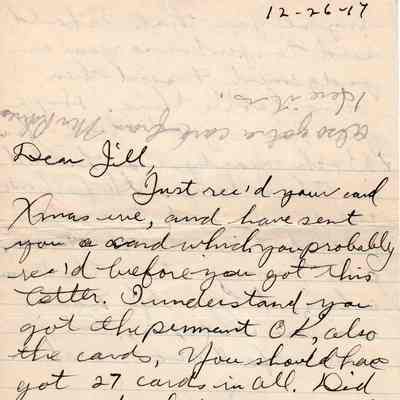 12-26-17
Here it is.
also got a card from Mr
Dear Jill,
Just rec'd your card
Xmas eve, and have sent
you a card which you probably
rec'd before you got this
letter. I understand you
got the pennant OK, also
the cards, You should have
got 27 cards in all. Did